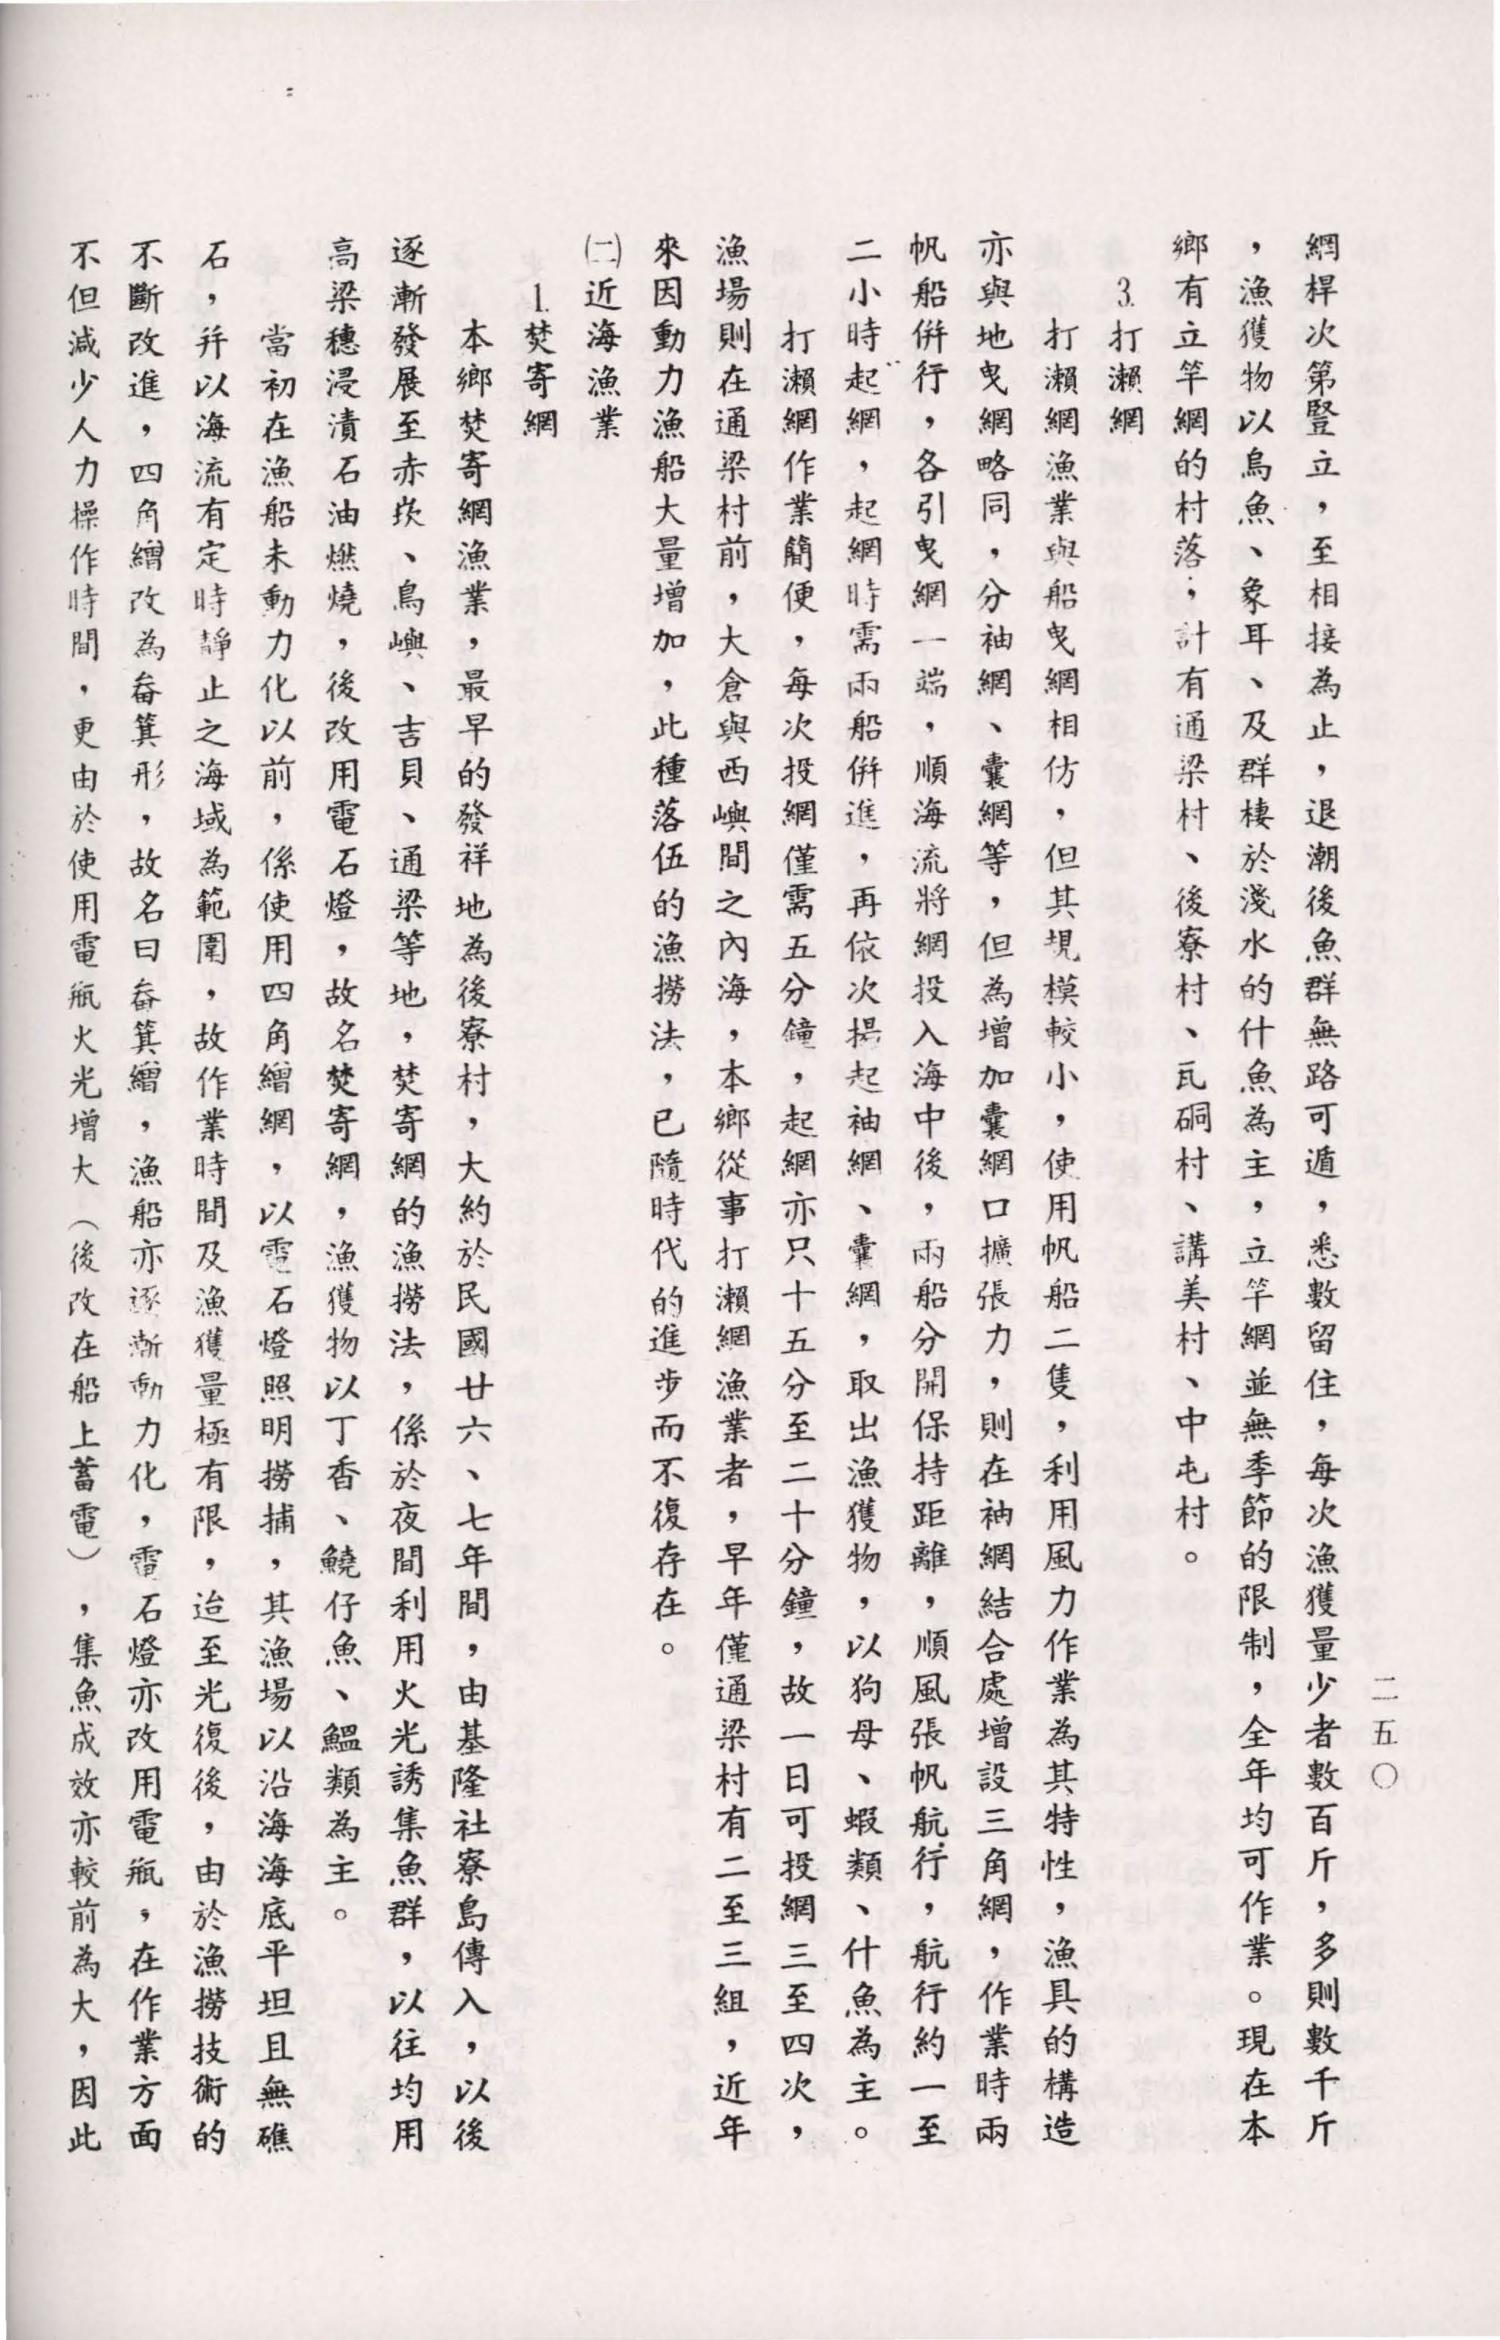 二五〇
網桿次第豎立，至相接為止，退潮後魚群無路可遁，悉數留住，每次漁獲量少者數百斤，多則數千斤
，漁獲物以烏魚、象耳、及群棲於淺水的什魚為主，立竿網並無季節的限制，全年均可作業。現在本
鄉有立竿網的村落；計有通梁村、後寮村、瓦硐村、講美村、中屯村。
3.打瀨網
打瀨網漁業與船曳網相仿，但其規模較小，使用帆船二隻，利用風力作業為其特性，漁具的構造
亦與地曳網略同，分袖網、囊網等，但為增加囊網口擴張力，則在袖網結合處增設三角網，作業時兩
帆船併行，各引曳網一端，順海流將網投入海中後，兩船分開保持距離，順風張帆航行，航行約一至
二小時起網，起網時需兩船併進，再依次揚起袖網、囊網，取出漁獲物，以狗母、蝦類、什魚為主。
打瀨網作業簡便，每次投網僅需五分鐘，起網亦只十五分至二十分鐘，故一日可投網三至四次，
漁場則在通梁村前，大倉與西嶼間之內海，本鄉從事打瀨網漁業者，早年僅通梁村有二至三組，近年
來因動力漁船大量增加，此種落伍的漁撈法，已隨時代的進步而不復存在。
㈡近海漁業
1.焚寄網
本鄉焚寄網漁業，最早的發祥地為後寮村，大約於民國廿六、七年間，由基隆社寮島傳入，以後
逐漸發展至赤崁、鳥嶼、吉貝、通梁等地，焚寄網的漁撈法，係於夜間利用火光誘集魚群，以往均用
高梁穗浸漬石油燃燒，後改用電石燈，故名焚寄網，漁獲物以丁香、鱙仔魚、鰮類為主。
當初在漁船未動力化以前，係使用四角繒網，以電石燈照明撈捕，其漁場以沿海海底平坦且無礁
石，幷以海流有定時靜止之海域為範圍，故作業時間及漁獲量極有限，迨至光復後，由於漁撈技術的
不斷改進，四角繒改為畚箕形，故名曰畚箕繒，漁船亦逐漸動力化，電石燈亦改用電瓶，在作業方面
不但減少人力操作時間，更由於使用電瓶火光增大（後改在船上蓄電），集魚成效亦較前為大，因此